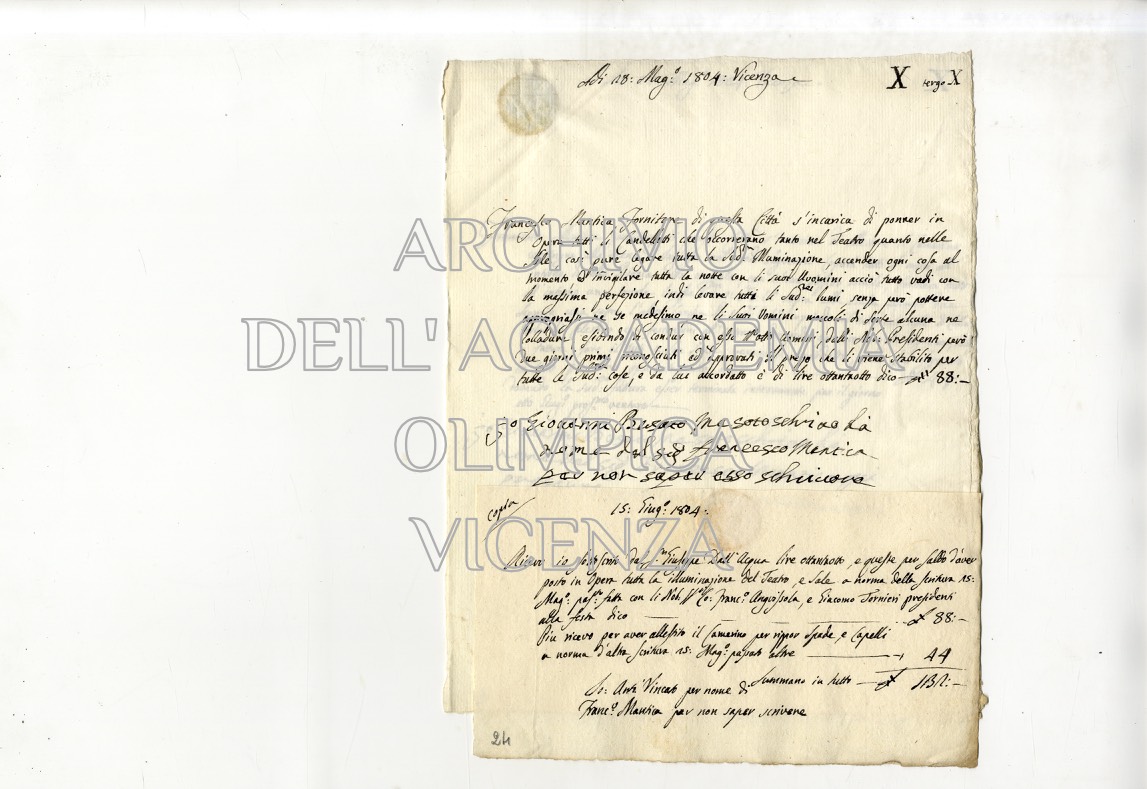 Adi 18: Mag.o 1804: Vicenza
X tergo X
Francesco Mantica Fornitore di questa Città s'incarica di ponner in
Opera tutti li Candelotti che occorrerano tanto nel Teatro quanto nelle
Sale così pure legare tutta la Sud.a Illuminazione, accender ogni cosa al
momento ed invigilare tutta la notte con li suoi Uvomini acciò tutto vadi con
la massima perfezione indi levare tutti li Sud.i lumi senza però pottere
ne se medesimo ne li suoi Uomini moccoli di sorte alcuna ne
colladure esibindo di condur con esso otto Uomini, dalli Presidenti però
due giorni primi riconosciuti ed approvati; il prezo che li viene stabilito per
tutte le Sud.e cose, e da lui accordatto è di lire ottantotto dico 88:-
Io Giovanni Busato ma sotoschrivo há
nome del Sig Francesco Mantica
per non saper esso schrivere
copia
15: Giug.o 1804:
Ricevo io sottoscritto dal S.r Giuseppe Dall'Acqua lire ottantotto, e queste per saldo d'aver
posto in Opera tutta la illuminazione del Teatro, e Sale a norma della scritura 18:
Mag.o pas.to fatta con li Nob. Co: Franc.o Anguissola, e Giacomo Tornieri presidenti
alla festa dico 88:-
Più ricevo per aver allestito il Camarino per ripor Spade, e Capelli
a norma d'altra scritura 18: Mag.o passato altre 44
Summano in tutto 132:-
Io: Ant.o Vincati per nome di
Franc.o Mantica per non saper scrivere
24
ARCHIVIO
DELL'ACCADEMIA
OLIMPICA
VICENZA